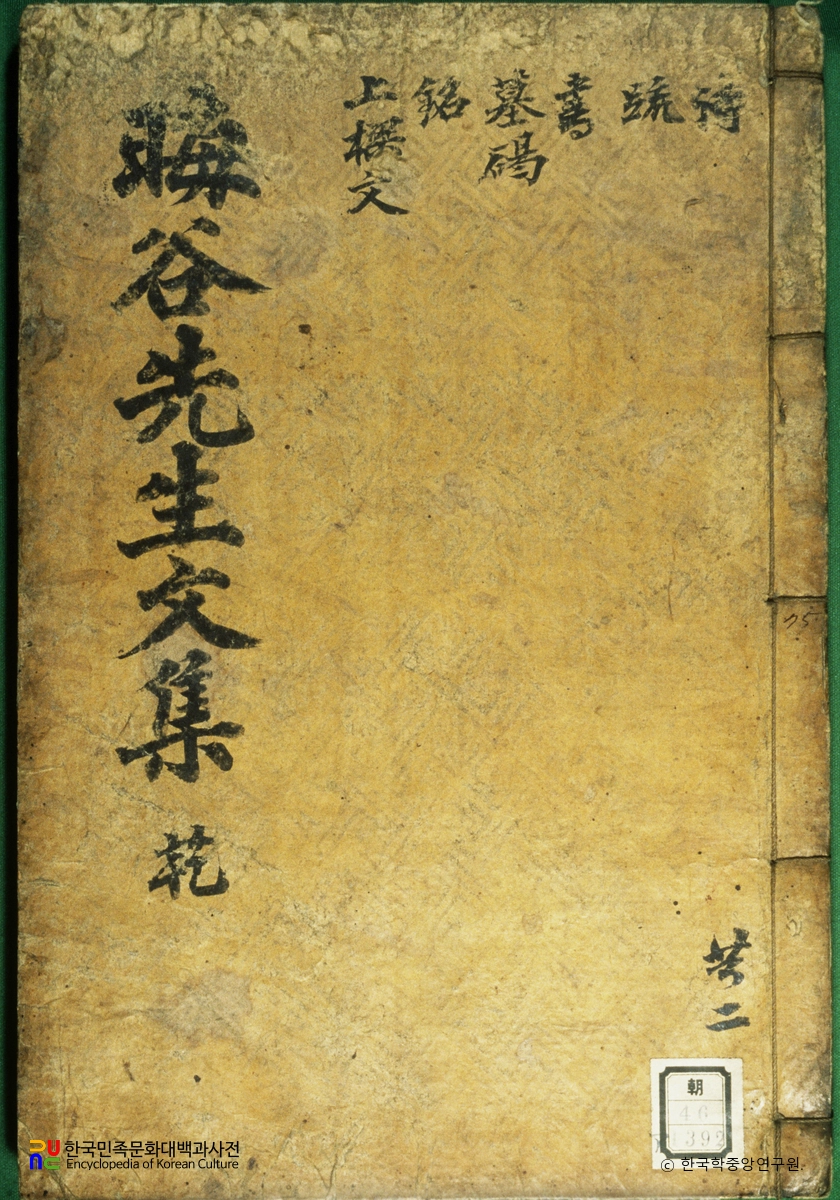 詩
疏
書
墓碣
銘
上樑文
晦谷先生文集 乾
共二
75
朝
46
392
한국민족문화대백과사전
Encyclopedia of Korean Culture
© 한국학중앙연구원